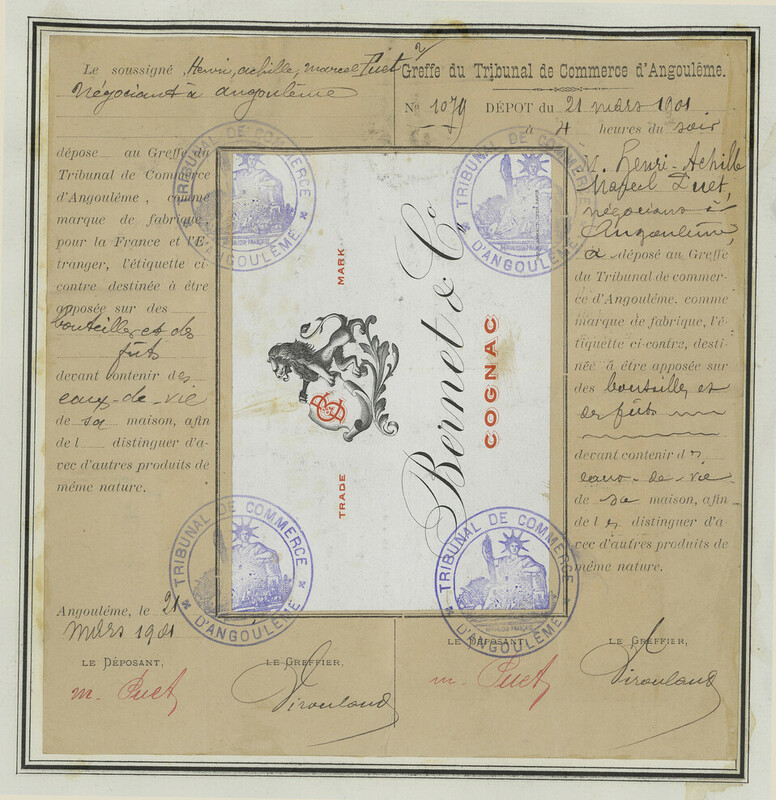 Le soussigné, Henri, Achille, Marcel Puet
négociant à angoulême
dépose au Greffe du
Tribunal de Commerce
d'Angoulême, comme
marque de fabrique
pour la France et l'E-
tranger, l'étiquette ci-
contre destinée à être
apposée sur des
bouteilles et des
fûts
devant contenir des
eaux-de-vie
de sa maison, afin
de l distinguer d'a-
vec d'autres produits de
même nature.
Angoulême, le 21
mars 1901
LE DÉPOSANT,
LE GREFFIER,
m. Puet
Greffe du Tribunal de Commerce d'Angoulême.
No 1079 DÉPOT du 21 mars 1901
à 4 heures du soir
M. Henri-Achille
Marcel Puet,
négociant à
Angoulême,
a déposé au Greffe
du Tribunal de commer-
ce d'Angoulême. comme
marque de fabrique, l'é-
tiquette ci-contre, desti-
née à être apposée sur
des bouteilles et
des fûts
devant contenir des
eaux-de-vie
de sa maison, afin
de les distinguer d'a-
vec d'autres produits de
même nature.
LE DÉPOSANT,
LE GREFFIER,
m. Puet
TRADE MARK
Bernet & Co
COGNAC
TRIBUNAL DE COMMERCE
D'ANGOULÊME
TRIBUNAL DE COMMERCE
D'ANGOULÊME
TRIBUNAL DE COMMERCE
D'ANGOULÊME
TRIBUNAL DE COMMERCE
D'ANGOULÊME